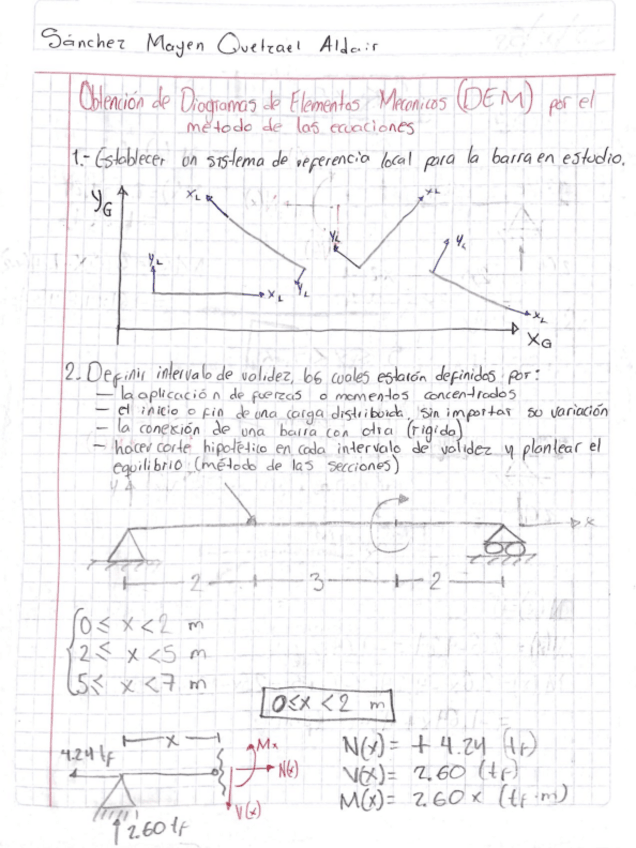 Sánchez Mayen Quetzael Aldair
Obtención de Diagramas de Elementos Mecanicos (DEM) por el
método de las ecuaciones
1.- Establecer un sistema de referencia local para la barra en estudio.
YG
XL
YL
YL
XL
YL
XL
YL
XL
XG
2. Definir intervalo de validez, los cuales estarán definidos por:
— la aplicación de fuerzas o momentos concentrados
— el inicio o fin de una carga distribuida, sin importar su variación
— la conexión de una barra con otra (rigido)
— hacer corte hipotético en cada intervalo de validez y plantear el
equilibrio (método de las secciones)
x
2 3 2
0 ≤ x < 2 m
2 ≤ x < 5 m
5 ≤ x < 7 m
0 ≤ x < 2 m
x
4.24 tf
Mx
N(x)
V(x)
2.60 tf
N(x) = + 4.24 (tf)
V(x) = 2.60 (tf)
M(x) = 2.60 x (tf·m)